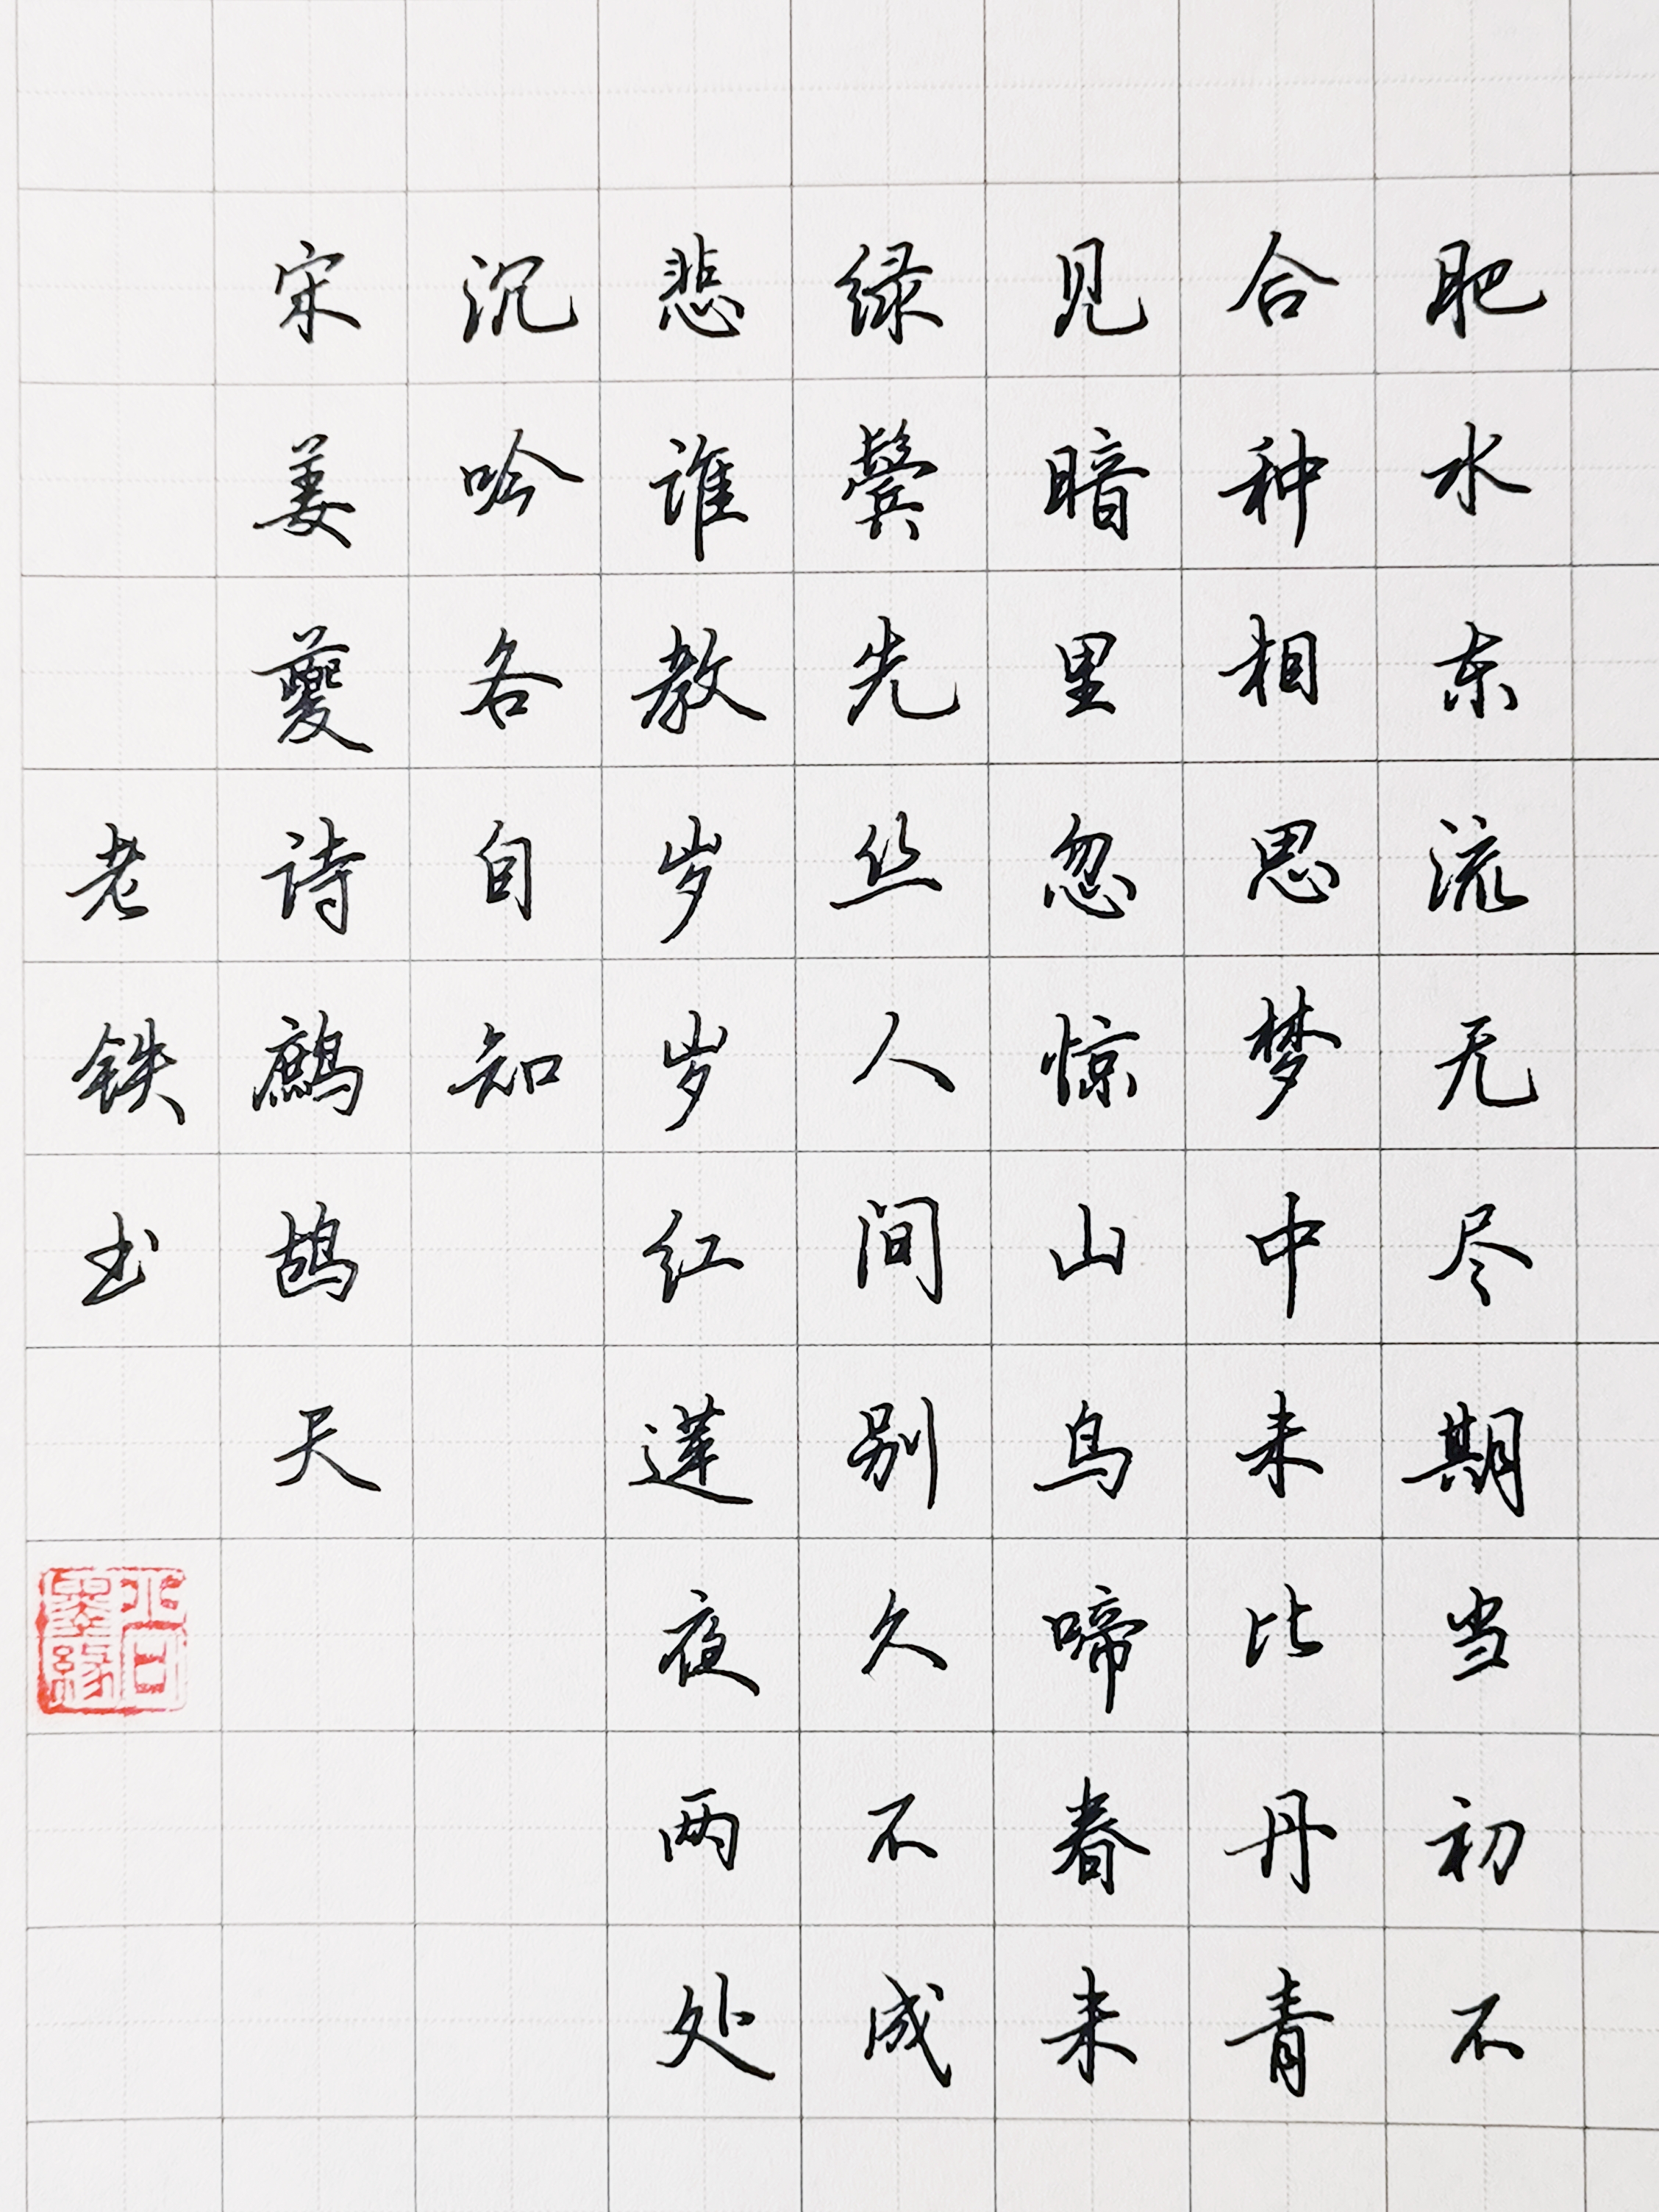 肥水东流无尽期当初不
合种相思梦中未比丹青
见暗里忽惊山鸟啼春未
绿鬓先丝人间别久不成
悲谁教岁岁红莲夜两处
沉吟各自知
宋姜夔诗鹧鸪天
老铁书
墨緣